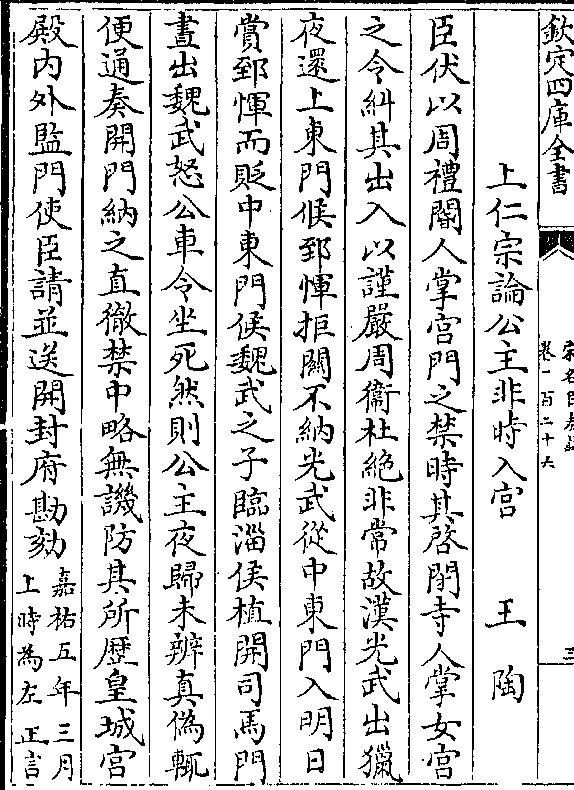 欽定四庫全書
卷一百二十六
三
上仁宗論公主非時入宮 王陶
臣伏以周禮閽人掌宮門之禁時其啓閉寺人掌女宮
之令糾其出入以謹嚴周衞杜絶非常故漢光武出獵
夜還上東門候郅惲拒關不納光武從中東門入明日
賞郅惲而貶中東門候魏武之子臨淄侯植開司馬門
晝出魏武怒公車令坐死然則公主夜歸未辨真偽輒
便通奏開門納之直徹禁中略無譏防其所歴皇城宮
殿内外監門使臣請並送開封府勘劾
嘉祐五年三月
上時為左正言